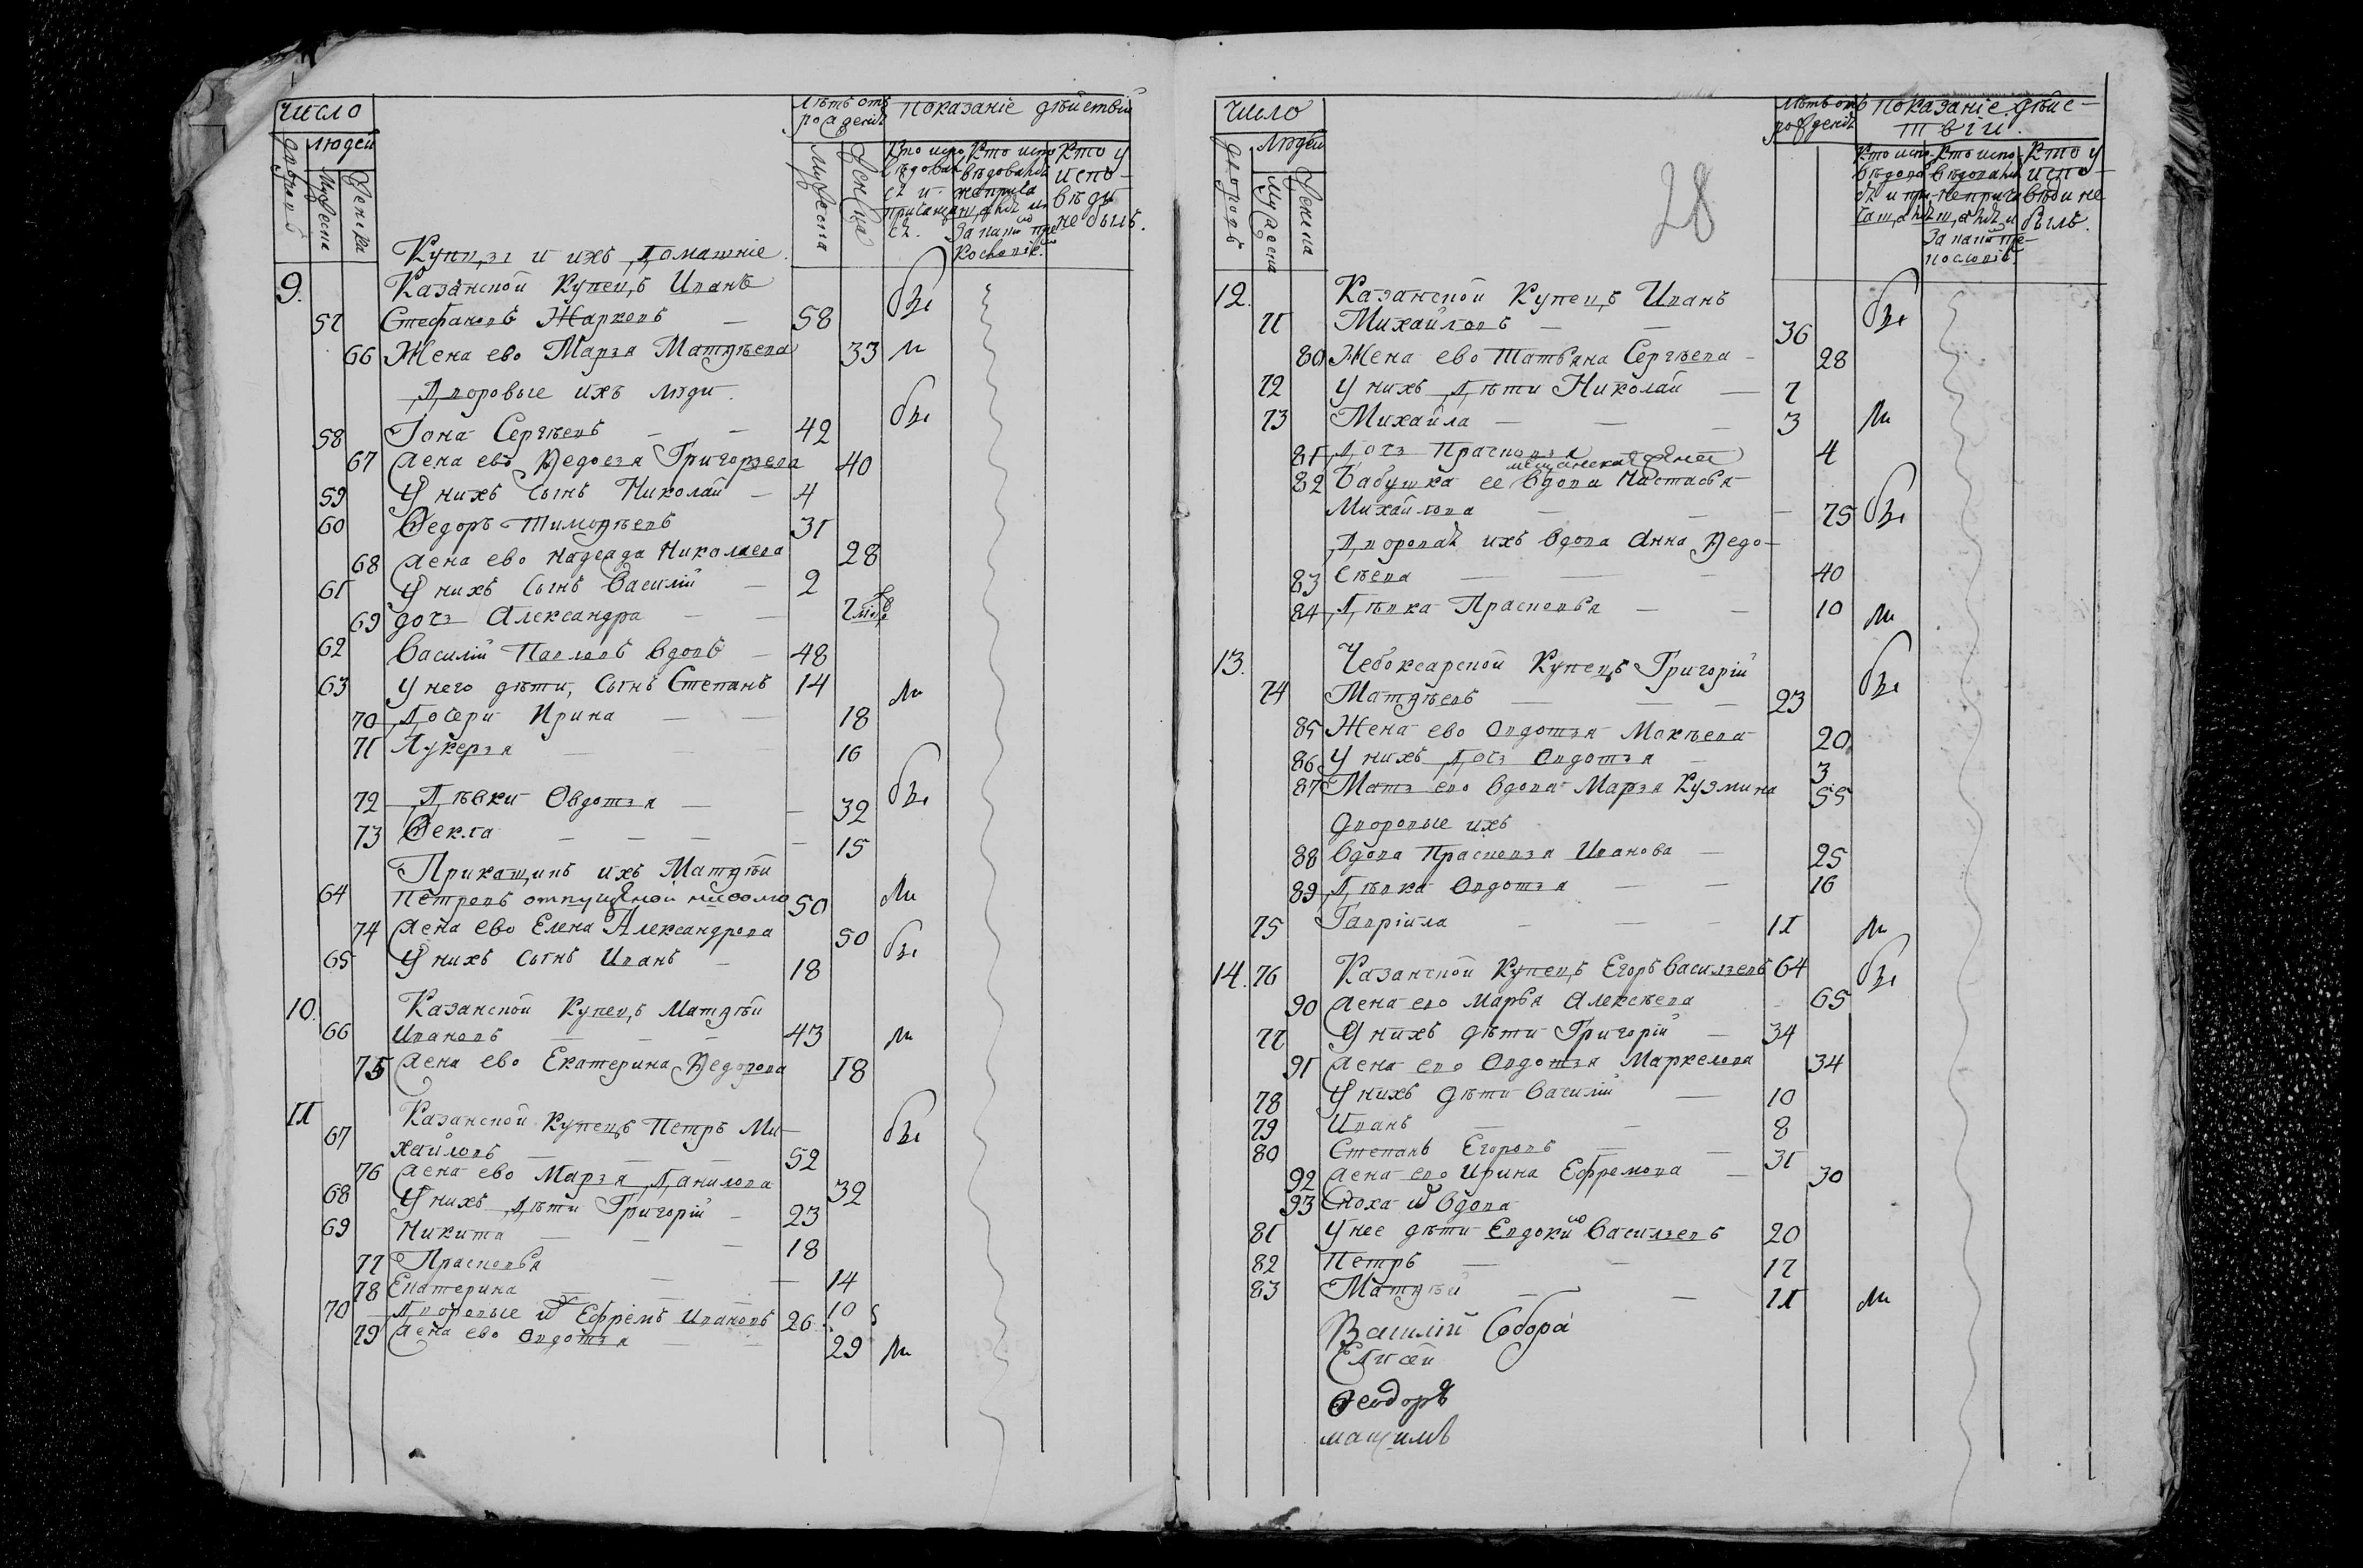 Число
Людей
дворовъ
Мужеска
Женска
Лѣтъ отъ рожденія
Мужеска
Женска
Показаніе дѣйствій
Кто исповѣдовался и причащался.
Кто исповѣдовался не причащался и за какимъ препятствіемъ
Кто у исповѣди не былъ.
Купцы и ихъ Домашніе.
9. Казанской Купецъ Иванъ
57 Стефановъ Жарковъ — 58 бы
66 Жена ево Марья Матѳѣева 33 ли
Дворовые ихъ люди.
58 Іона Сергѣевъ — — 42 бы
67 Жена ево Ѳедосья Григорьева 40
59 У нихъ Сынъ Николай — 4
60 Ѳедоръ Тимоѳѣевъ 31
68 Жена ево Надежда Николаева 28
61 У нихъ Сынъ Василій — 2
69 дочь Александра — —
62 Василій Павловъ вдовъ — 48
63 У него дѣти, Сынъ Степанъ 14 ли
70 Дочери Ирина — — 18
71 Лукерья — — 16
72 Дѣвки Овдотья — — 32 бы
73 Ѳекла — — — — 15
Прикащикъ ихъ Матѳѣй
64 Петровъ отпущеной 50 ли
74 Жена ево Елена Александрова 50
65 У нихъ Сынъ Иванъ — 18 бы
10. Казанской Купецъ Матѳѣй
66 Ивановъ — — — 43 ли
75 Жена ево Екатерина Ѳедорова 18
11 Казанской Купецъ Петръ Ми-
67 хайловъ — — — 52 бы
76 Жена ево Марья Данилова 32
68 У нихъ Дѣти Григорій — 23
69 Никита — — — 18
77 Прасковья — — 14
78 Екатерина — — 10
70 Дворовые ихъ Ефремъ Ивановъ 26
79 Жена ево Овдотья — — 29 ли
Число
Людей
дворовъ
Мужеска
Женска
Лѣтъ отъ рожденія
Показаніе дѣйствій.
Кто исповѣдовался и причащался
Кто исповѣдовался не причащался и за какимъ
Кто у исповѣди не былъ.
28
12. Казанской Купецъ Иванъ
71 Михайловъ — — 36 бы
80 Жена ево Татьяна Сергѣева — 28
72 У нихъ Дѣти Николай — 7
73 Михайла — — — 3 ли
81 Дочь Прасковья 4
мещанская
82 Бабушка ее вдова Настасья
Михайлова — — — 75 бы
Дворовая ихъ вдова Анна Ѳедо-
83 сѣева — — — 40
84 Дѣвка Прасковья — — 10 ли
13. Чебоксарской Купецъ Григорій
74 Матѳѣевъ — — — 23 бы
85 Жена ево Овдотья Мокѣева 20
86 У нихъ Дочь Овдотья — 3
87 Мать ево вдова Марья Кузмина 55
дворовые ихъ
88 вдова Прасковья Иванова — 25
89 Дѣвка Овдотья — — 16
75 Гаврійла — — — 11 ли
14. 76 Казанской Купецъ Егоръ Васильевъ 64 бы
90 Жена ево Марья Алексѣева 65
77 У нихъ дѣти Григорій — 34
91 Жена ево Овдотья Маркелова 34
78 У нихъ дѣти Василій — 10
79 Иванъ — — 8
80 Степанъ Егоровъ — — 31
92 Жена ево Ирина Ефремова — 30
93 Сноха ихъ вдова
81 У нее дѣти Евдокимъ Васильевъ 20
82 Петръ — — 17
83 Матѳѣй — — 11 ли
Василій Собора
Елисей
Ѳеодоръ